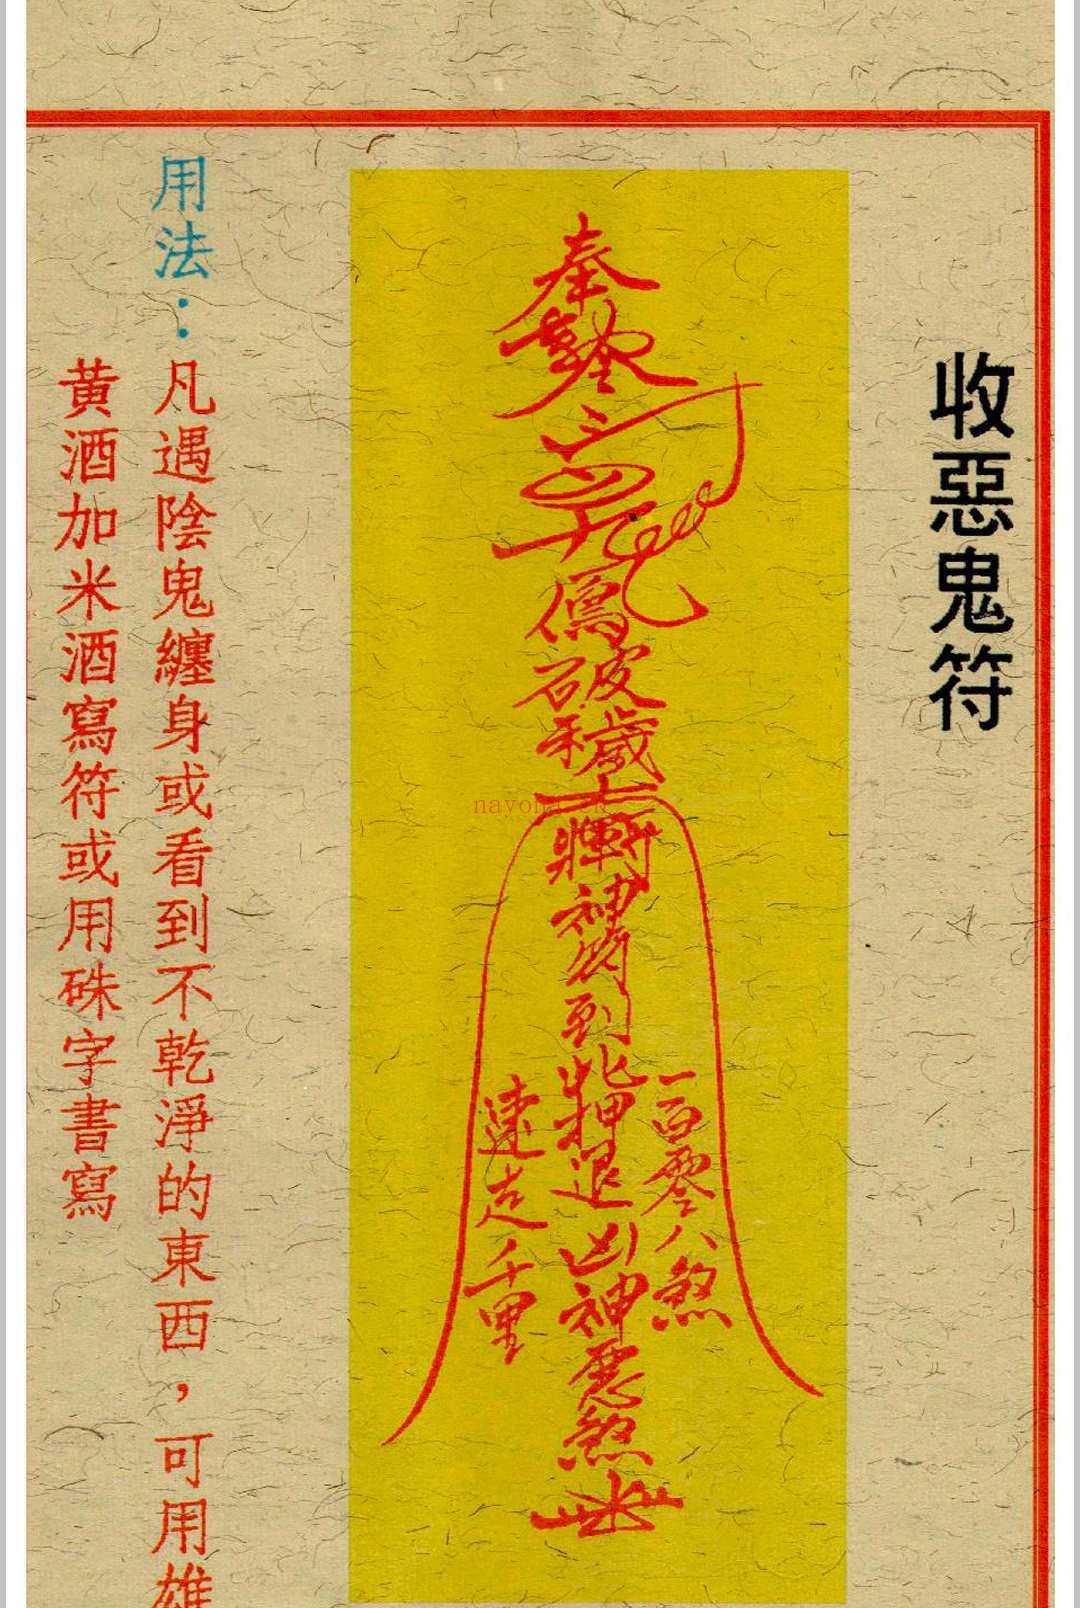 收惡鬼符
奉
佛破穢
神符到此押退凶神惡煞
一百零八煞
速走千里
用法：凡遇陰鬼纏身或看到不乾淨的東西，可用雄
黃酒加米酒寫符或用硃字書寫